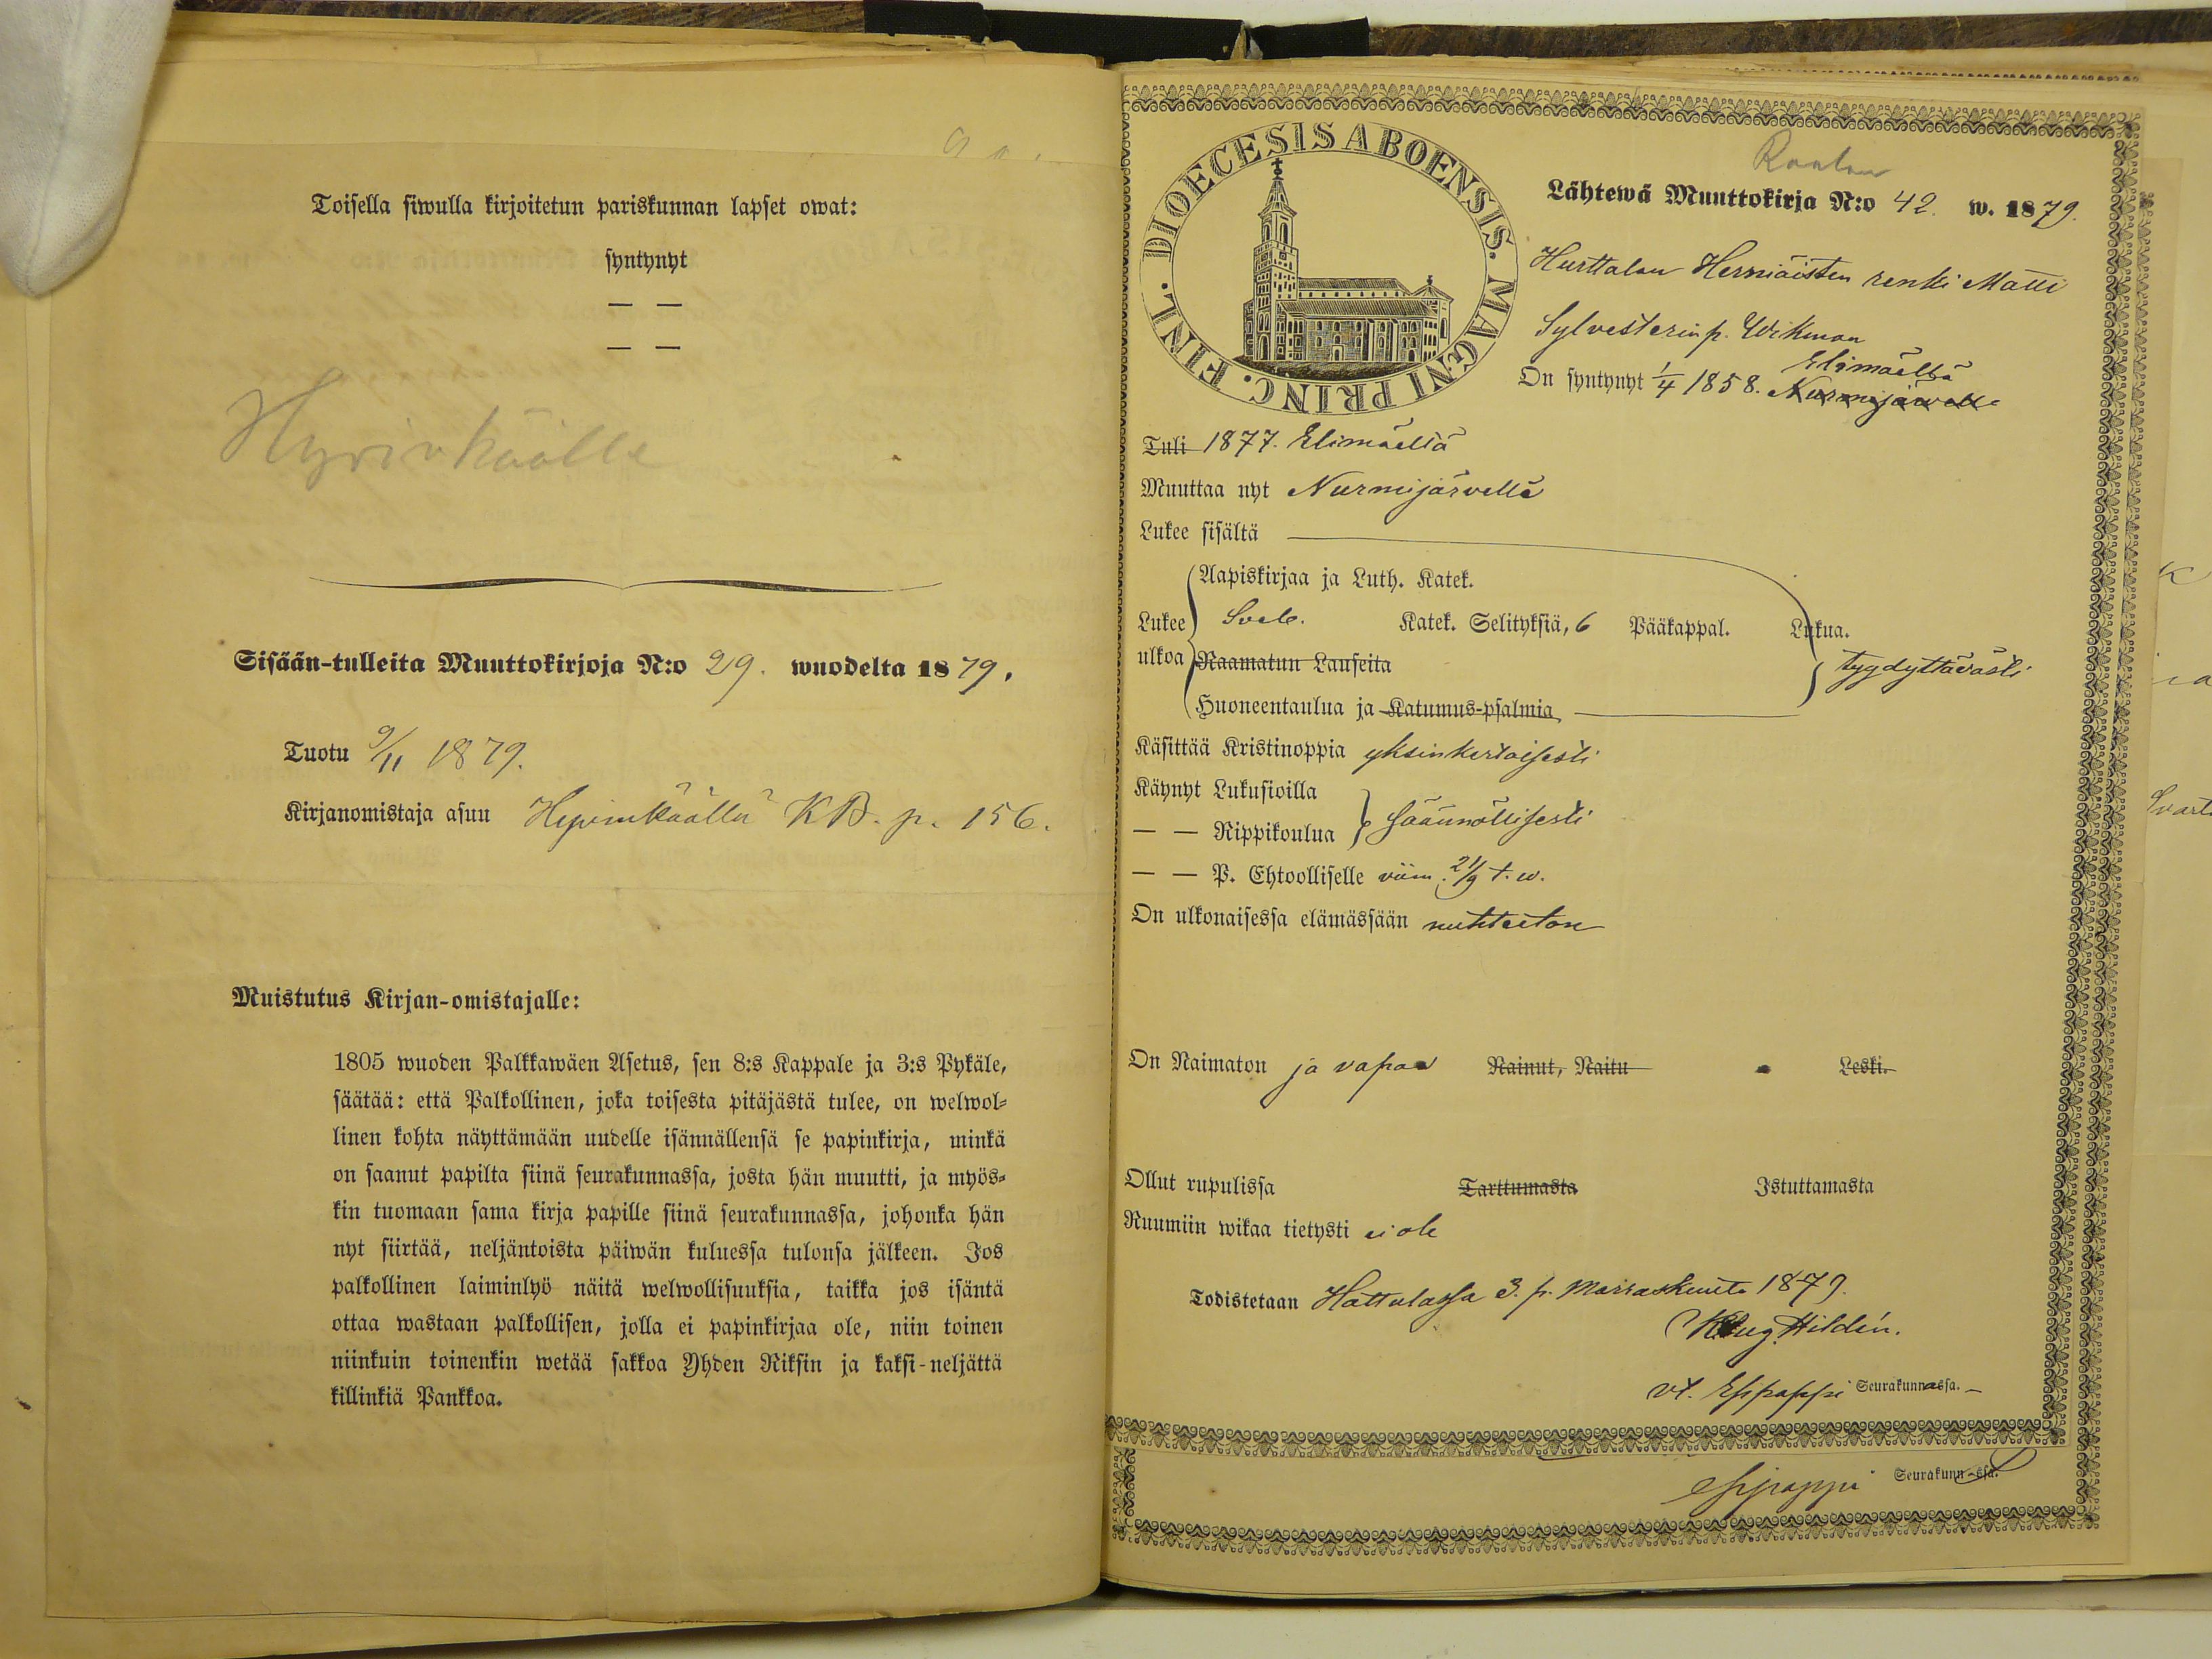 Toisella siwulla kirjoitetun pariskunnan lapset owat:
syntynyt
— —
— —
Hyvinkäälle
Sisään-tulleita Muuttokirjoja N:o 29. wuodelta 1879.
Tuotu 9/11 1879.
Kirjanomistaja asuu Hyvinkäällä KB. p. 156.
Muistutus Kirjan-omistajalle:
1805 wuoden Palkkawäen Asetus, sen 8:s Kappale ja 3:s Pykäle,
säätää: että Palkollinen, joka toisesta pitäjästä tulee, on welwol-
linen kohta näyttämään uudelle isännällensä se papinkirja, minkä
on saanut papilta siinä seurakunnassa, josta hän muutti, ja myös-
kin tuomaan sama kirja papille siinä seurakunnassa, johonka hän
nyt siirtää, neljäntoista päiwän kuluessa tulonsa jälkeen. Jos
palkollinen laiminlyö näitä welwollisuuksia, taikka jos isäntä
ottaa wastaan palkollisen, jolla ei papinkirjaa ole, niin toinen
niinkuin toinenkin wetää sakkoa Yhden Riksin ja kaksi-neljättä
killinkiä Pankkoa.
DIOECESIS ABOENSIS. MAGNI PRINC. FINL.
Lähtewä Muuttokirja N:o 42. w. 1879.
Hurttalan Herniäisten renki Matti
Sylvesterin p. Wikman
Elimäellä
On syntynyt 1/4 1858. Nurmijärvellä
Tuli 1877. Elimäeltä
Muuttaa nyt Nurmijärvelle
Lukee sisältä
Aapiskirjaa ja Luth. Katek.
Lukee ulkoa Sveb. Katek. Selityksiä, 6 Pääkappal. Lukua.
Raamatun Lauseita tyydyttävästi
Huoneentaulua ja Katumus-psalmia
Käsittää Kristinoppia yksinkertaisesti
Käynyt Lukusioilla
— — Rippikoulua säännöllisesti
— — P. Ehtoolliselle viim. 21/9 t. w.
On ulkonaisessa elämässään nuhteeton
On Naimaton ja vapaa Nainut, Naitu Leski.
Ollut rupulissa Tarttumasta Istuttamasta
Ruumiin wikaa tietysti ei ole
Todistetaan Hattulassa 3. p. Marraskuuta 1879.
Aug. Hildén.
vt. Esipappi Seurakunnassa.
Esipappi Seurakunnassa.